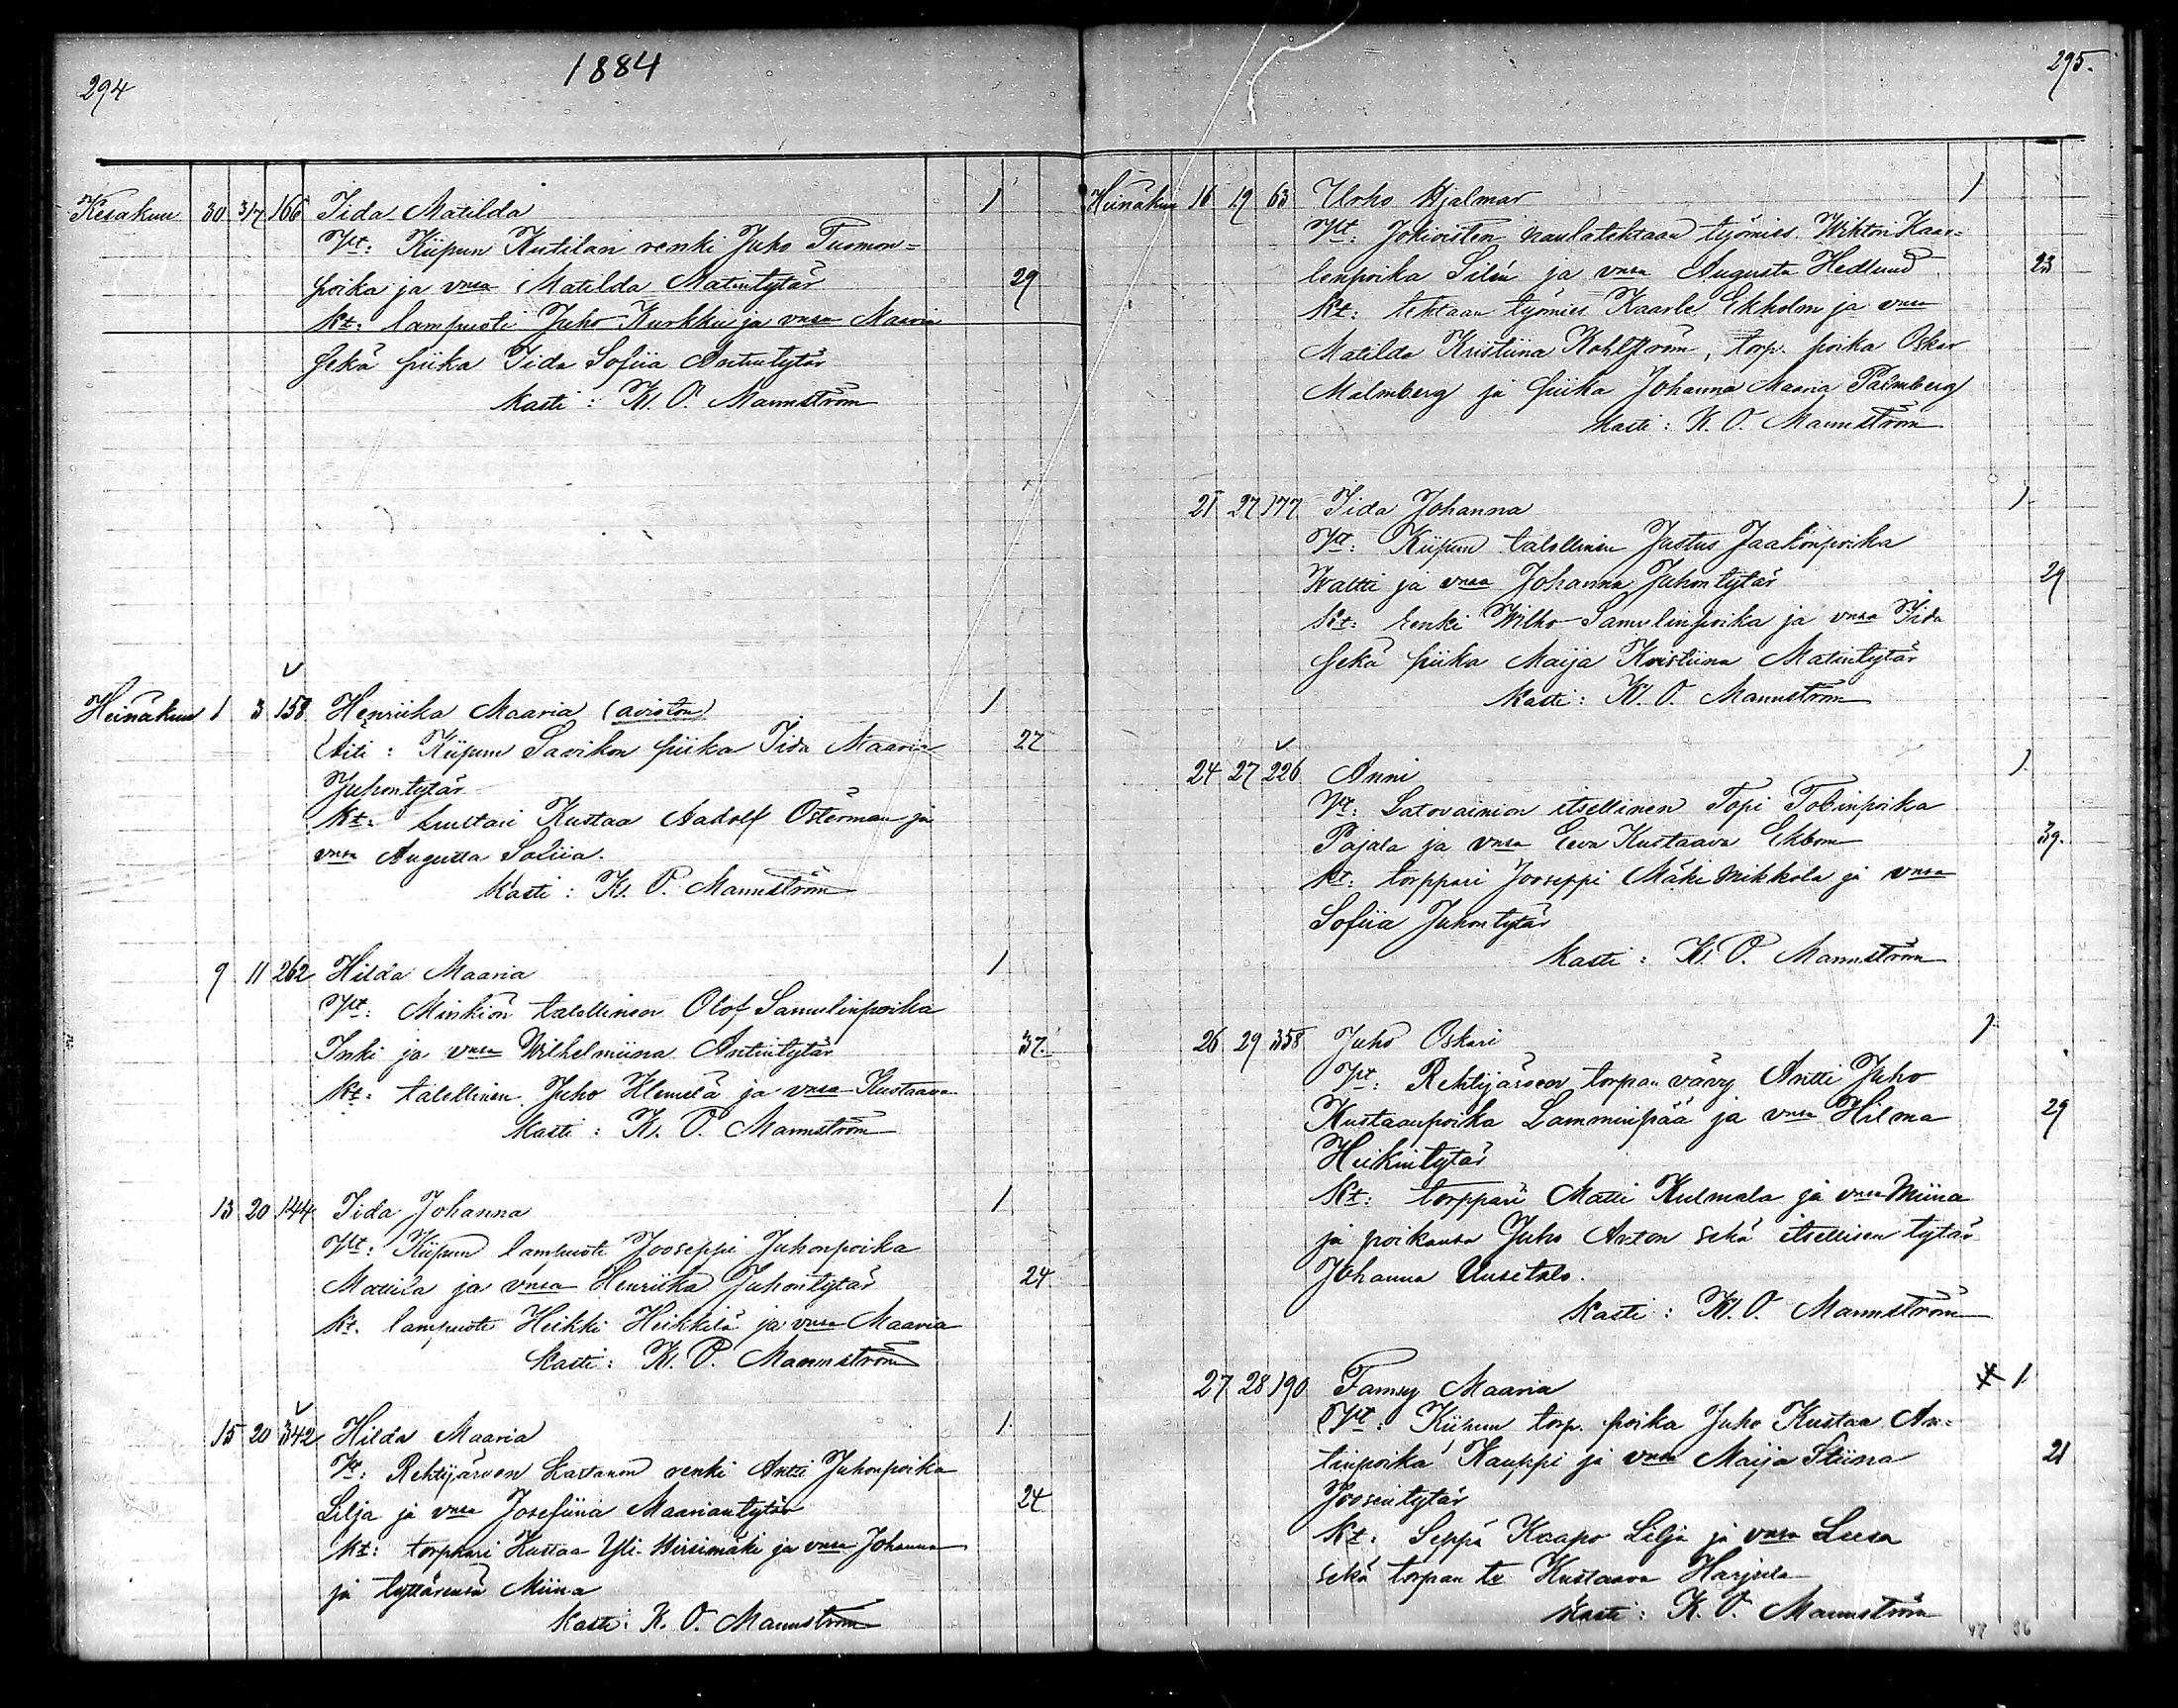 294
1884
Kesäkuu 30 3/7 166 Iida Matilda 1
Vt: Kiipun Kutilan renki Juho Tuomon=
poika ja vnsa Matilda Matintytär 29
Kt: lampuoti Juho Kurkki ja vnsa Maaria
sekä piika Iida Sofiia Antintytär
Kasti: K. O. Mannström
Heinäkuu 1 3 158 Henriika Maaria (avioton) 1
Äiti: Kiipun Savikon piika Iida Maaria 27
Juhontytär
Kt: Kustaa Aadolf Österman ja
vnsa Augusta Sofiia.
Kasti: K. O. Mannström
9 11 262 Hilda Maaria 1
Vt: Minkiön talollinen Olof Samulinpoika
Inki ja vnsa Wilhelmiina Antintytär 37.
Kt: talollinen Juho Klemelä ja vnsa Kustaava
Kasti: K. O. Mannström
13 20 144 Iida Johanna 1
Vt: Kiipun lampuoti Jooseppi Juhonpoika
Mattila ja vnsa Henriika Juhontytär 24
Kt. lampuoti Heikki Heikkilä ja vnsa Maaria
Kasti: K. O. Mannström
15 20 342 Hilda Maaria 1.
Vt: Rehtijärven Kartanon renki Antti Juhonpoika
Lilja ja vnsa Josefiina Maariantytär 24
Kt: torppari Kustaa Yli-Hirsimäki ja vnsa Johanna
ja tyttärensä Miina
Kasti: K. O. Mannström
295.
Heinäkuu 16 19 63 Urho Hjalmar 1
Vt: Jokioisten naulatehtaan työmies Wihtori Kaar=
lenpoika Silén ja vnsa Augusta Hedlund 23
Kt: tehtaan työmies Kaarle Ekholm ja vnsa
Matilda Kristiina Kohlström, torp. poika Oskar
Malmberg ja piika Johanna Maaria Palmberg
Kasti: K. O. Mannström
21 27 177 Iida Johanna 1
Vt: Kiipun talollinen Justus Jaakonpoika
Waltti ja vnsa Johanna Juhontytär 29
Kt: renki Wilho Samulinpoika ja vnsa Iida
sekä piika Maija Kristiina Matintytär
Kasti: K. O. Mannström
24 27 226 Anni 1
Vt: Latovainion itsellinen Topi Tobinpoika
Pajala ja vnsa Eeva Kustaava Ekbom 39.
Kt: torppari Jooseppi Mäki Mikkola ja vnsa
Sofiia Juhontytär
Kasti: K. O. Mannström
26 29 358 Juho Oskari 1
Vt: Rehtijärven torpan vävy Antti Juho
Kustaanpoika Lamminpää ja vnsa Hilma 29
Heikintytär
Kt: torppari Matti Kulmala ja vnsa Miina
ja poikansa Juho Anton sekä itsellisen tytär
Johanna Uusitalo.
Kasti: K. O. Mannström
27 28 190 Fanny Maaria 1
Vt: Kiipun torp. poika Juho Kustaa An=
tinpoika Kauppi ja vnsa Maija Stiina 21
Joosentytär
Kt: Seppä Kaapo Lilja ja vnsa Leesa
sekä torpan tr Kustaava Harjula
Kasti: K. O. Mannström
47 36